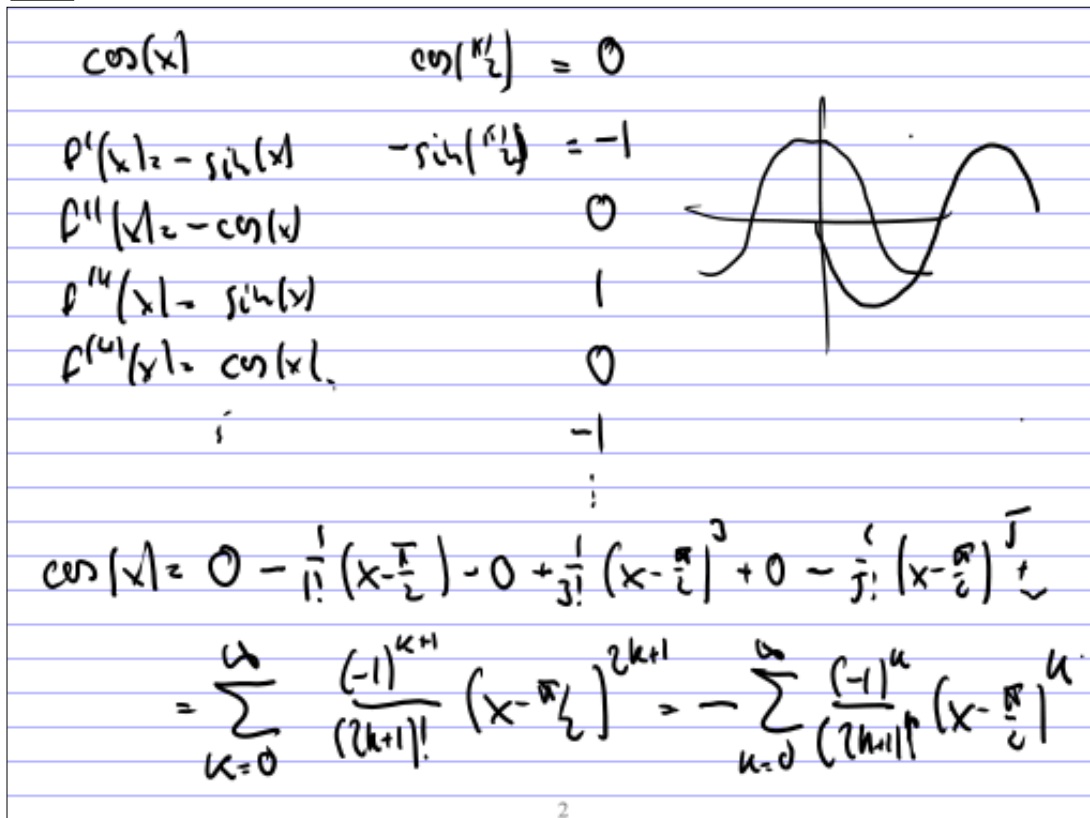 cos(x) cos(π/2) = 0
f'(x) = -sin(x) -sin(π/2) = -1
f''(x) = -cos(x) 0
f'''(x) = sin(x) 1
f⁽⁴⁾(x) = cos(x). 0
⋮ -1
⋮
cos(x) = 0 - 1/1! (x-π/2) - 0 + 1/3! (x-π/2)^3 + 0 - 1/5! (x-π/2)^5 + …
= ∑_{k=0}^{∞} (-1)^{k+1}/(2k+1)! (x-π/2)^{2k+1} = -∑_{k=0}^{∞} (-1)^k/(2k+1)! (x-π/2)^k
2